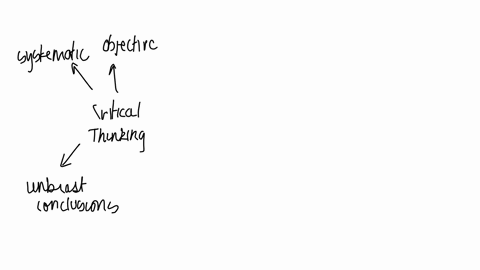 systematic objective
Critical
Thinking
unbiast
conclusions